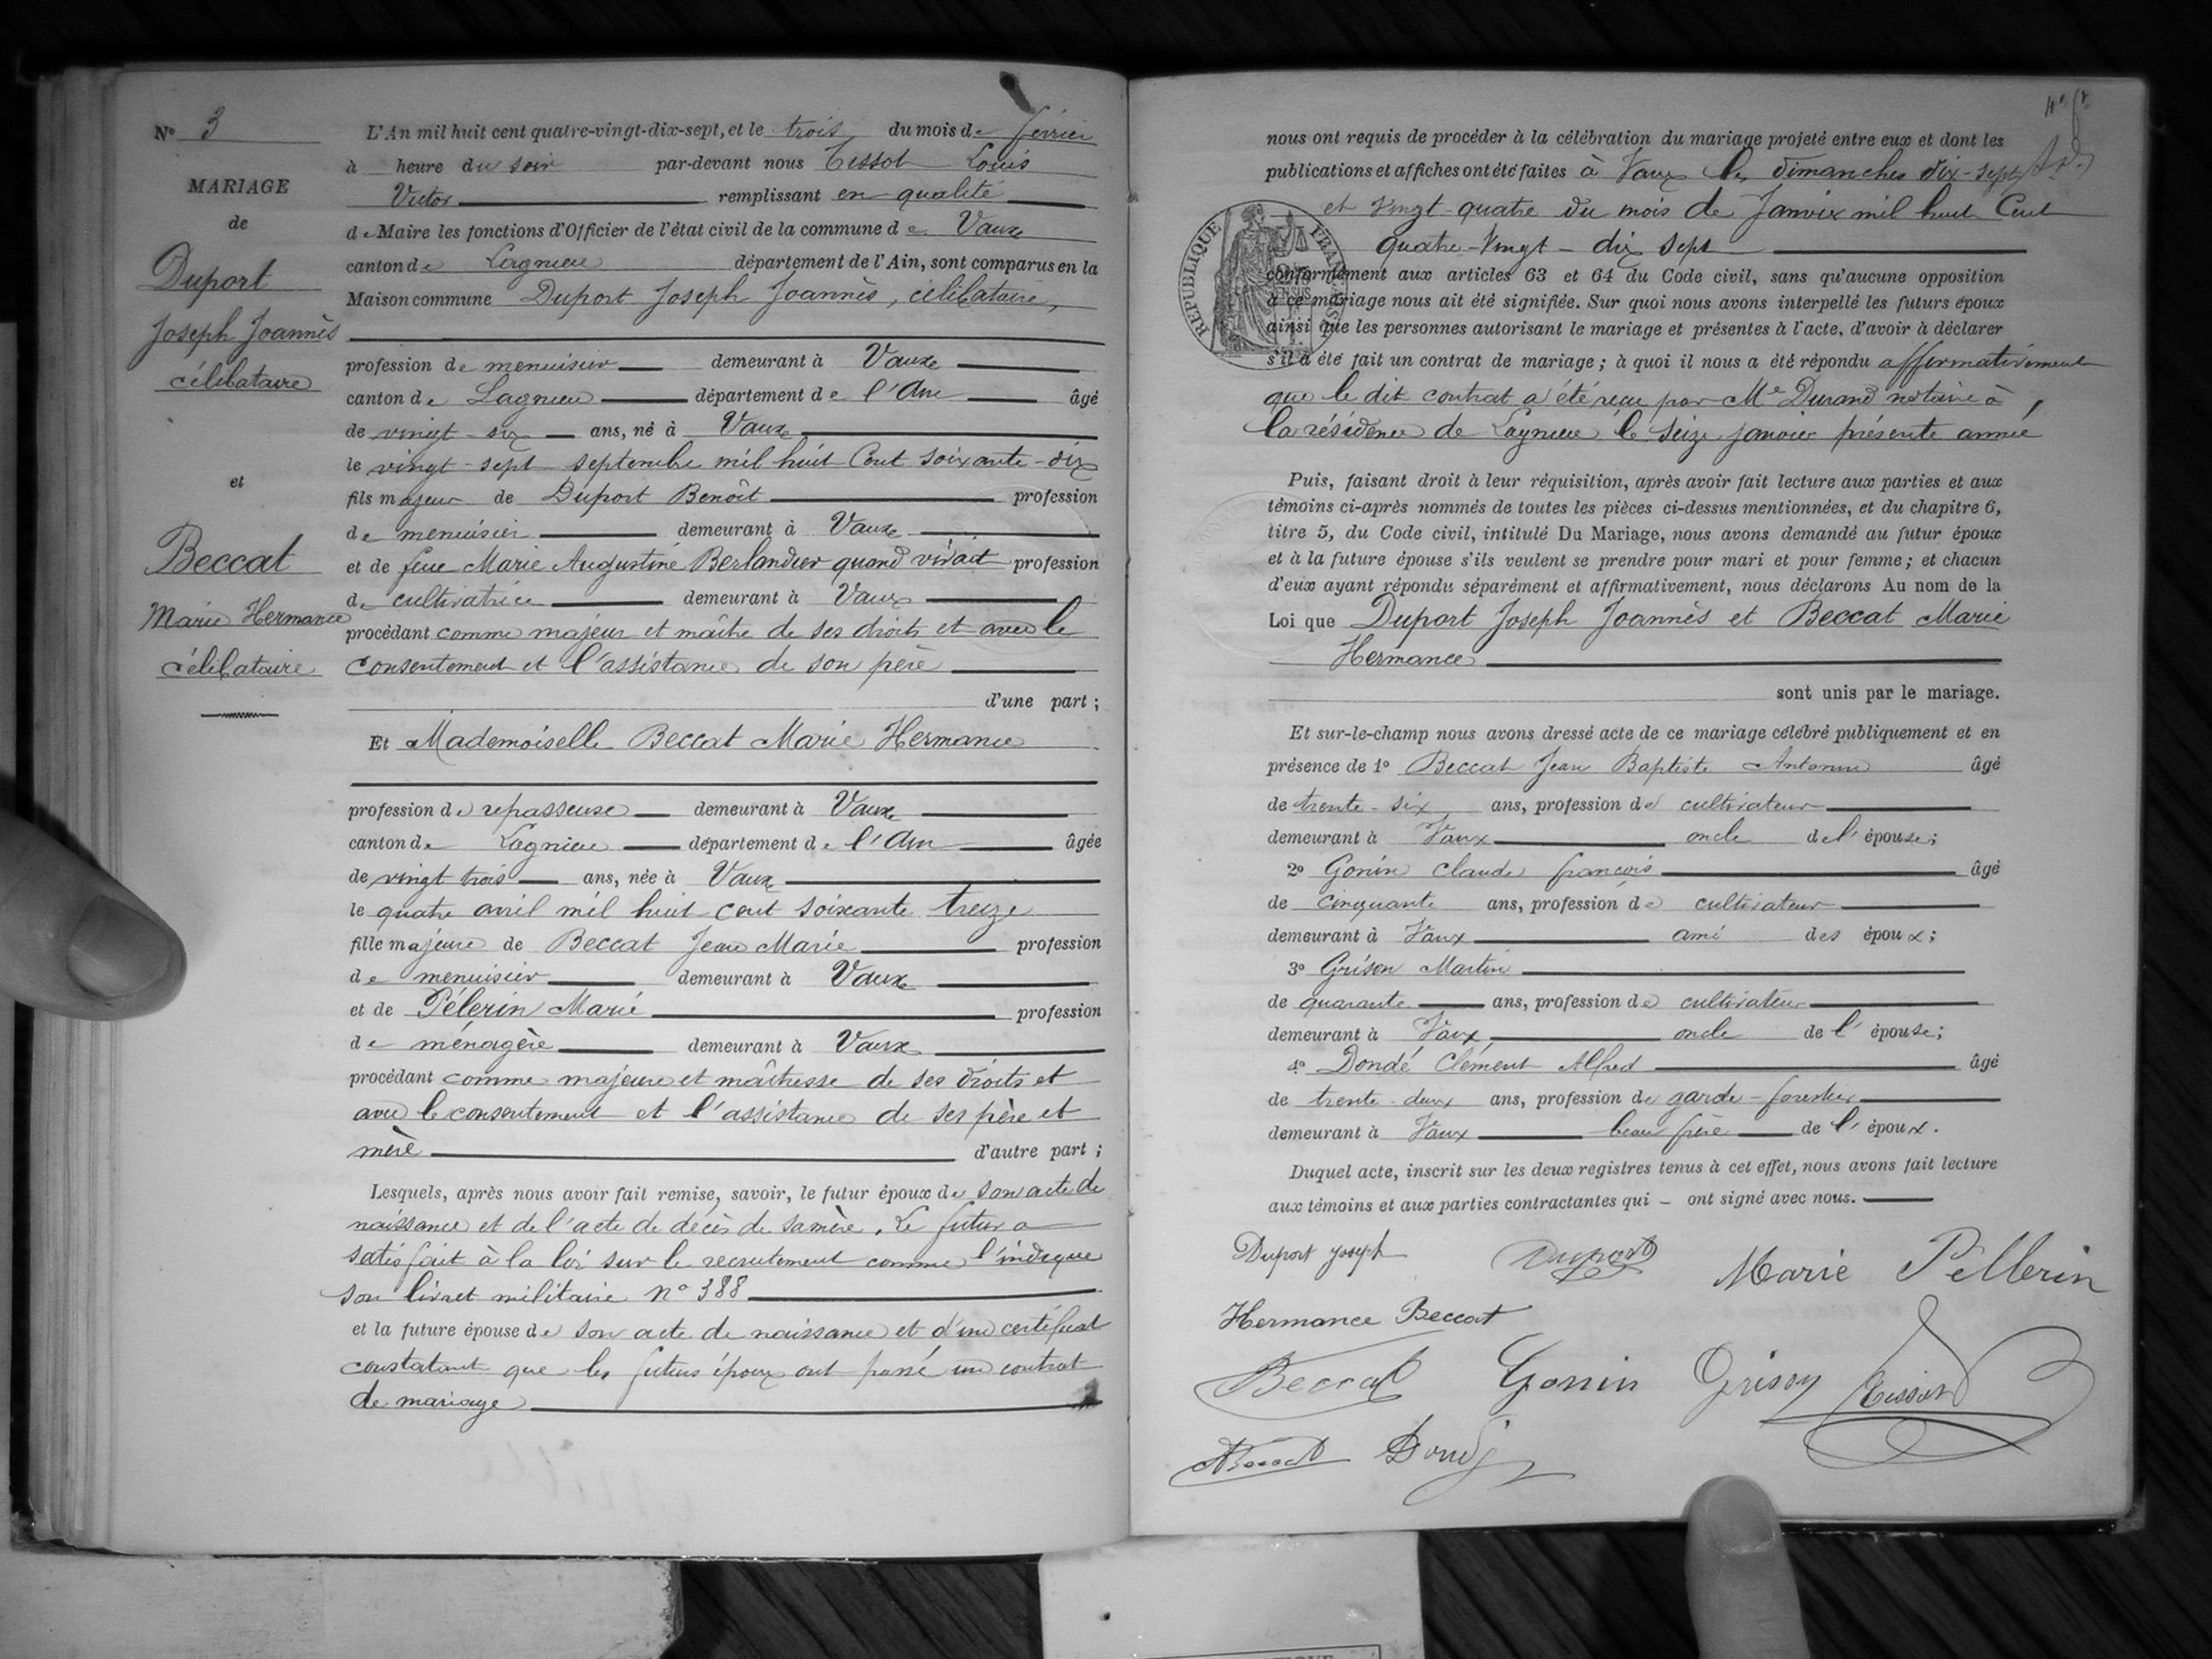 N° 3
MARIAGE
de
Duport
Joseph Joannès
célibataire
et
Beccat
Marie Hermance
célibataire
L'An mil huit cent quatre-vingt-dix-sept, et le trois du mois de février
à heure du soir par-devant nous Tissot Louis
Victor remplissant en qualité
de Maire les fonctions d'Officier de l'état civil de la commune de Vaux
canton de Lagnieu département de l'Ain, sont comparus en la
Maison commune Duport Joseph Joannès, célibataire,
profession de menuisier demeurant à Vaux
canton de Lagnieu département de l'Ain âgé
de vingt-six ans, né à Vaux
le vingt-sept septembre mil huit Cent soixante-dix
fils majeur de Duport Benoît profession
de menuisier demeurant à Vaux
et de feue Marie Augustine Berlandier quand vivait profession
de cultivatrice demeurant à Vaux
procédant comme majeur et maître de ses droits et avec le
consentement et l'assistance de son père
d'une part ;
Et Mademoiselle Beccat Marie Hermance
profession de repasseuse demeurant à Vaux
canton de Lagnieu département de l'Ain âgée
de vingt trois ans, née à Vaux
le quatre avril mil huit cent soixante treize
fille majeure de Beccat Jean Marie profession
de menuisier demeurant à Vaux
et de Pélerin Marie profession
de ménagère demeurant à Vaux
procédant comme majeure et maîtresse de ses droits et
avec le consentement et l'assistance de ses père et
mère d'autre part ;
Lesquels, après nous avoir fait remise, savoir, le futur époux de son acte de
naissance et de l'acte de décès de sa mère. Le futur a
satisfait à la loi sur le recrutement comme l'indique
son livret militaire n° 388
et la future épouse de son acte de naissance et d'un certificat
constatant que les futurs époux ont passé un contrat
de mariage
nous ont requis de procéder à la célébration du mariage projeté entre eux et dont les
publications et affiches ont été faites à Vaux les dimanches dix-sept
et vingt-quatre du mois de Janvier mil huit Cent
quatre-vingt-dix sept
RÉPUBLIQUE FRANÇAISE
conformément aux articles 63 et 64 du Code civil, sans qu'aucune opposition
à ce mariage nous ait été signifiée. Sur quoi nous avons interpellé les futurs époux
ainsi que les personnes autorisant le mariage et présentes à l'acte, d'avoir à déclarer
s'il a été fait un contrat de mariage ; à quoi il nous a été répondu affirmativement
que le dit contrat a été reçu par Me Durand notaire à
la résidence de Lagnieu le seize janvier présente année
Puis, faisant droit à leur réquisition, après avoir fait lecture aux parties et aux
témoins ci-après nommés de toutes les pièces ci-dessus mentionnées, et du chapitre 6,
titre 5, du Code civil, intitulé Du Mariage, nous avons demandé au futur époux
et à la future épouse s'ils veulent se prendre pour mari et pour femme ; et chacun
d'eux ayant répondu séparément et affirmativement, nous déclarons Au nom de la
Loi que Duport Joseph Joannès et Beccat Marie
Hermance
sont unis par le mariage.
Et sur-le-champ nous avons dressé acte de ce mariage célébré publiquement et en
présence de 1° Beccat Jean Baptiste Antonin âgé
de trente-six ans, profession de cultivateur
demeurant à Vaux oncle de l'épouse ;
2° Gonin Claude françois âgé
de cinquante ans, profession de cultivateur
demeurant à Vaux ami des époux ;
3° Grison Martin
de quarante ans, profession de cultivateur
demeurant à Vaux oncle de l'épouse ;
4° Dondé Clément Alfred âgé
de trente-deux ans, profession de garde-forestier
demeurant à Vaux beau frère de l'époux.
Duquel acte, inscrit sur les deux registres tenus à cet effet, nous avons fait lecture
aux témoins et aux parties contractantes qui - ont signé avec nous.
Duport Joseph Duport Marie Pellerin
Hermance Beccat
Beccat Gonin Grison Tissot
Beccat Dondé